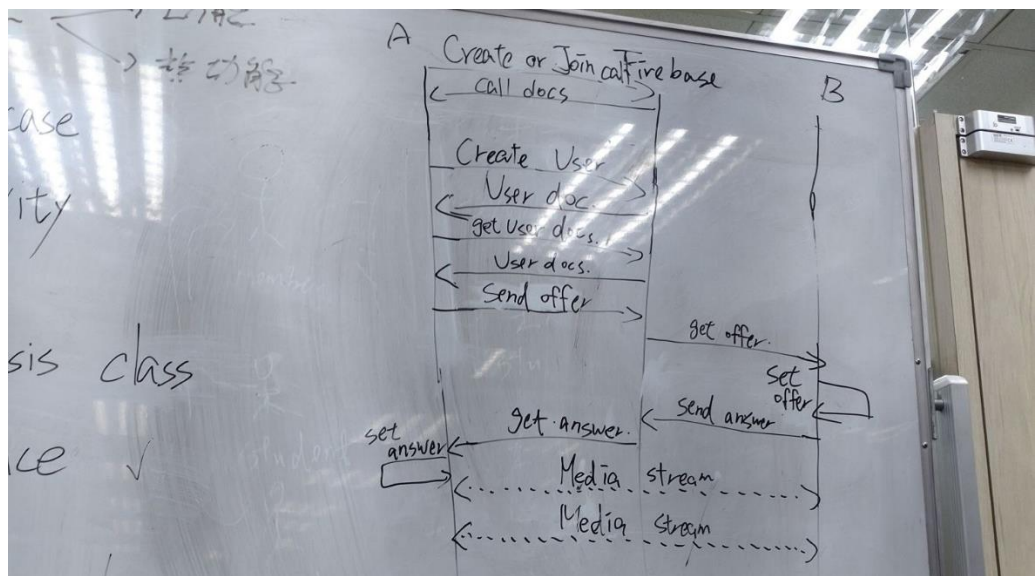 功能
case
ity
sis class
ce ✓
A
Create or Join call
Firebase
B
call docs
Create User
User doc.
get User docs.
User docs.
Send offer
get offer.
set
offer
send answer
get answer.
set
answer
Media stream
Media stream